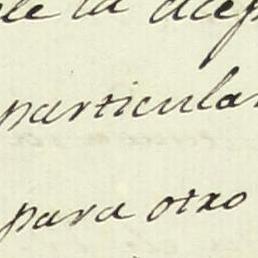 la
particular
para otro